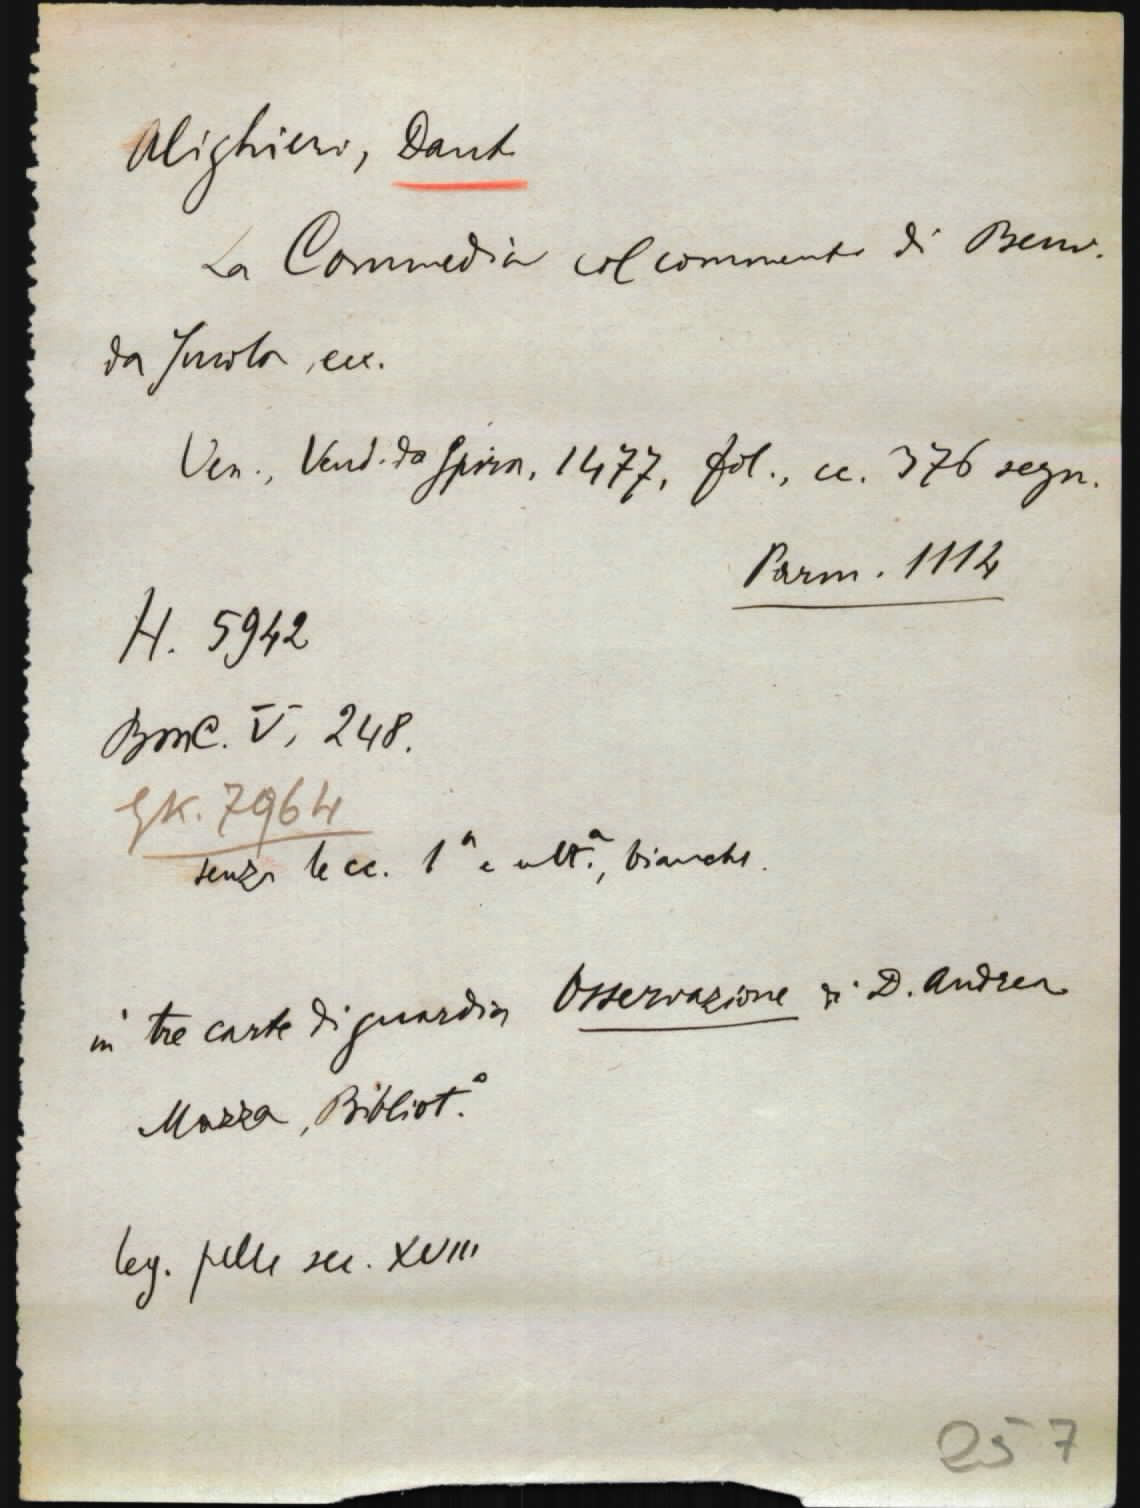 Alighieri, Dante
La Commedia col commento di Benv.
da Imola, ecc.
Ven., Vend. da Spira, 1477, fol., cc. 376 segn.
Parm. 1112
H. 5942
BMC. V, 248.
GK. 7964
senza le cc. 1ª e ultª., bianche.
in tre carte di guardia Osservazione di D. Andrea
Mazza, Bibliot.º
leg. pelle sec. XVIII
257